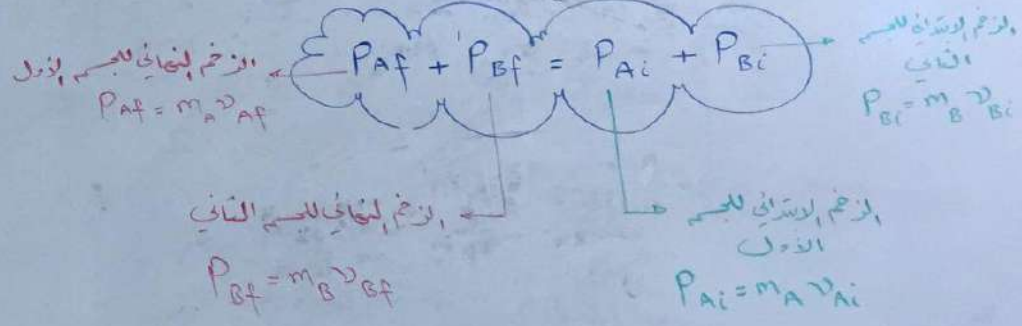 P_Af + P_Bf = P_Ai + P_Bi
الزخم النهائي للجسم الأول
P_Af = m_A v_Af
الزخم الابتدائي للجسم
الثاني
P_Bi = m_B v_Bi
الزخم النهائي للجسم الثاني
P_Bf = m_B v_Bf
الزخم الابتدائي للجسم
الأول
P_Ai = m_A v_Ai